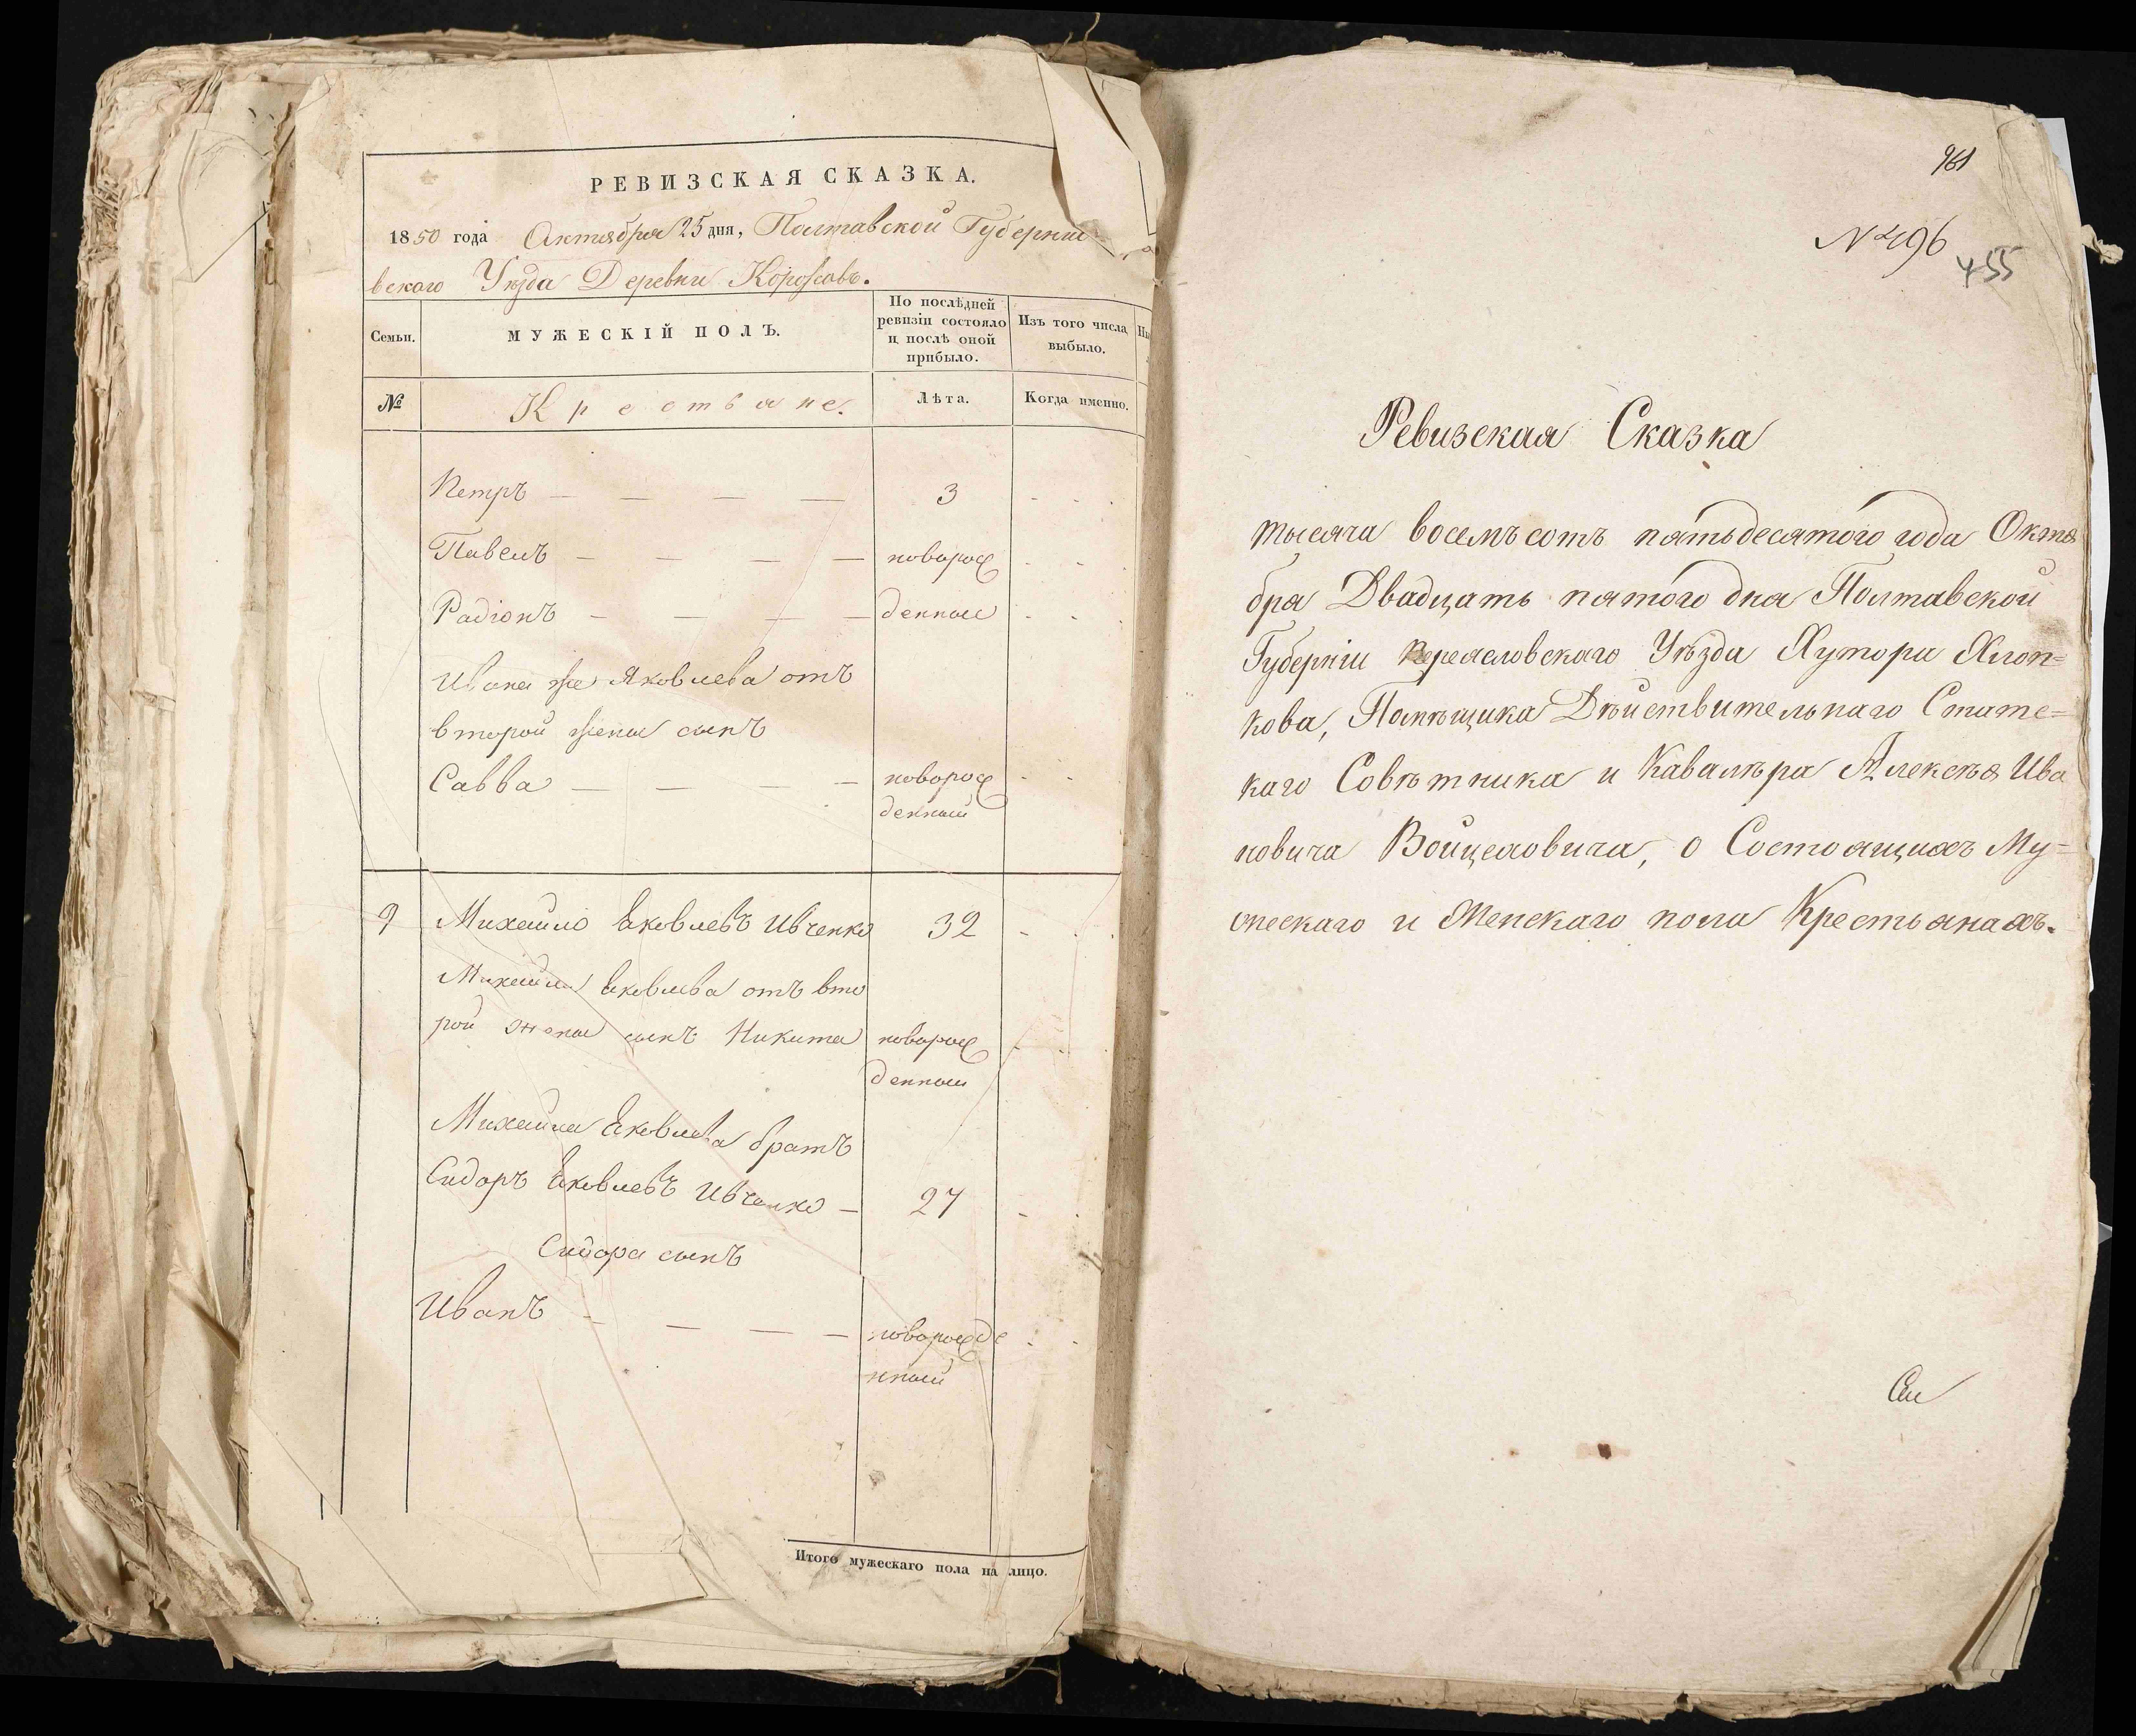 РЕВИЗСКАЯ СКАЗКА.
1850 года Октября 25 дня, Полтавской Губерніи
вского Уѣзда Деревни
Семьи.
МУЖЕСКІЙ ПОЛЪ.
По послѣдней
ревизіи состояло
и послѣ оной
прибыло.
Изъ того числа
выбыло.
№
Крестьяне.
Лѣта.
Когда именно.
Петръ — — — — 3
Павелъ — — — — новорож
Радіонъ — — — — денные
Ивана же Яковлева отъ
второй жены сынъ
Савва — — — — новорож
денный
9 Михайло Яковлевъ Ивченко 32
Михайла Яковлева отъ вто
рой жены сынъ Никита новорож
денный
Михайла Яковлева братъ
Сидоръ Яковлевъ Ивченко — 27
Сидора сынъ
Иванъ — — — — новорожде
нный
Итого мужескаго пола на лицо.
961
№496
455
Ревизская Сказка
тысяча восемъсотъ пятьдесятого года Октя
бря Двадцать пятого дня Полтавской
Губерніи Переяславскаго Уѣзда Хутора Хлоп=
кова, Помѣщика Дѣйствительнаго Статс=
каго Совѣтника и Кавалѣра Алексѣя Ива
новича Войцеховича, о Состоящихъ Му=
жескаго и Женскаго пола Крестьянахъ.